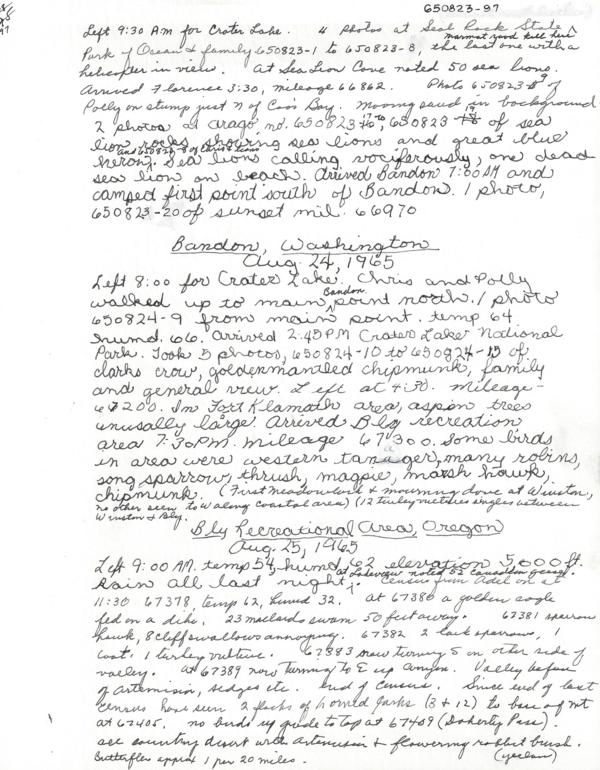 650823-97
Left 9:30 AM for Crater Lake. 4 photos at Seal Rock State
Park of Ocean & family 650823-1 to 650823-8, the last one with a
helicopter in view. At Sea Lion Cove noted 50 sea lions.
Arrived Florence 3:30, mileage 66862. Photo 650823-9 of
Polly on stump just N of Coos Bay. Moving sand in background.
2 photos at Arago, no. 650823 to 650823 of sea
lion rocks showing sea lions and great blue
heron. Sea lions calling vociferously, one dead
sea lion on beach. Arrived Bandon 7:00 PM and
camped first point south of Bandon. 1 photo,
650823-20 of sunset mil. 66970
Bandon, Washington
Aug. 24, 1965
Left 8:00 for Crater Lake. Chris and Polly
walked up to main Bandon point north. 1 photo
650824-9 from main point. temp 64
humd. 66. Arrived 2:45 PM Crater Lake National
Park. Took 5 photos, 650824-10 to 650824-15 of
clarks crow, goldenmantled chipmunk, family
and general view. Left at 4:30. Mileage-
67200. In Fort Klamath area, aspen trees
unusally large. Arrived Bly recreation
area 7:30 PM. Mileage 67300. Some birds
in area were western tanager, many robins,
song sparrow, thrush, magpie, marsh hawk,
chipmunk. (First meadowlark & mourning dove at Winston,
no other seen to W along coastal area) (12 turkey vultures singles between
Winston & Bly.
Bly Recreational Area, Oregon
Aug. 25, 1965
Left 9:00 AM. temp 54, humd. 62 elevation 5,000 ft.
Rain all last night; at Lakeview noted 53 Canadian geese. Census from Adel on at
11:30 67378, temp 62, humd 32. at 67380 a golden eagle
fed on a dike. 23 mallards swam 50 feet away. 67381 sparrow
hawk, 8 cliff swallows annoying. 67382 2 lark sparrows, 1
coot. 1 turkey vulture. 67383 now turning S on other side of
valley. at 67389 now turning to E up canyon. Valley before
of Artemisia, sedges etc. End of Census. Since end of last
census have seen 2 flocks of horned larks (3 & 12) to base of mt
at 67405. no birds up grade to top at 67409 (Doherty Pass).
see country desert with Artemisia & flowering rabbit brush.
(yellow)
Butterflies approx 1 per 20 miles.